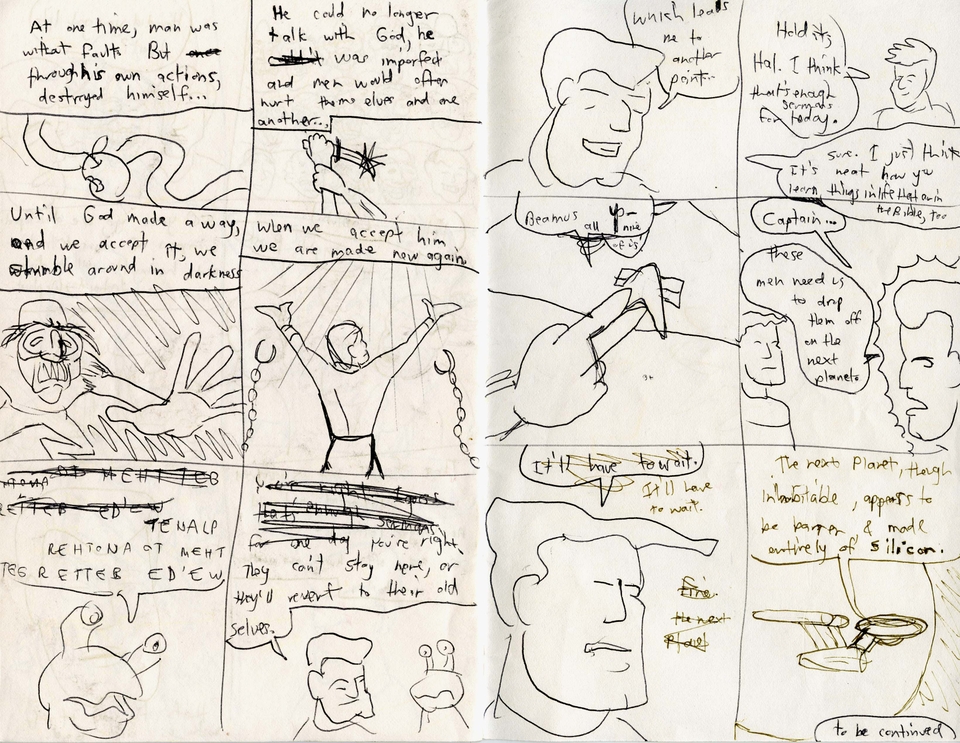 At one time, man was
withat faults But
through his own actions,
destroyed himself...
He could no longer
talk with God, he
was imperfect
and men would often
hurt themselves and one
another...
Until God made a way,
and we accept it, we
stumble around in darkness
When we accept him,
we are made new again
TENALP
REHTONA OT MEHT
TEG RETTEB ED'EW
You're right.
They can't stay here, or
they'll revert to their old
selves.
Which leads
me to
another
point...
Hold it,
Hal. I think
that's enough
sermons
for today.
Sure. I just think
It's neat how you
learn things in life that are in
the Bible, too
Beam us
all up-
nine
of us
Captain...
these
men need us
to drop
them off
on the
next
planet.
It'll have to wait.
It'll have
to wait.
Fine.
the next
Planet
The next Planet, though
inhabitable, appears to
be barren & made
entirely of silicon.
to be continued